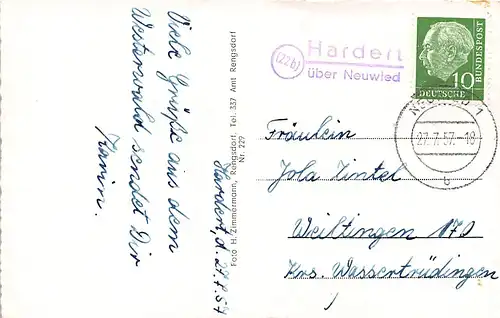 Viele Grüße aus dem
Westerwald sendet Dir
Karin.
Hardert, d. 27.7.57
Foto H. Zimmermann, Rengsdorf. Tel. 337 Amt Rengsdorf
Nr. 229
(22b)
Hardert
über Neuwied
10
DEUTSCHE
BUNDESPOST
NEUWIED 1
27.7.57.-18
b
Fräulein
Jola Zintel
Weiltingen 170
Krs. Wassertrüdingen